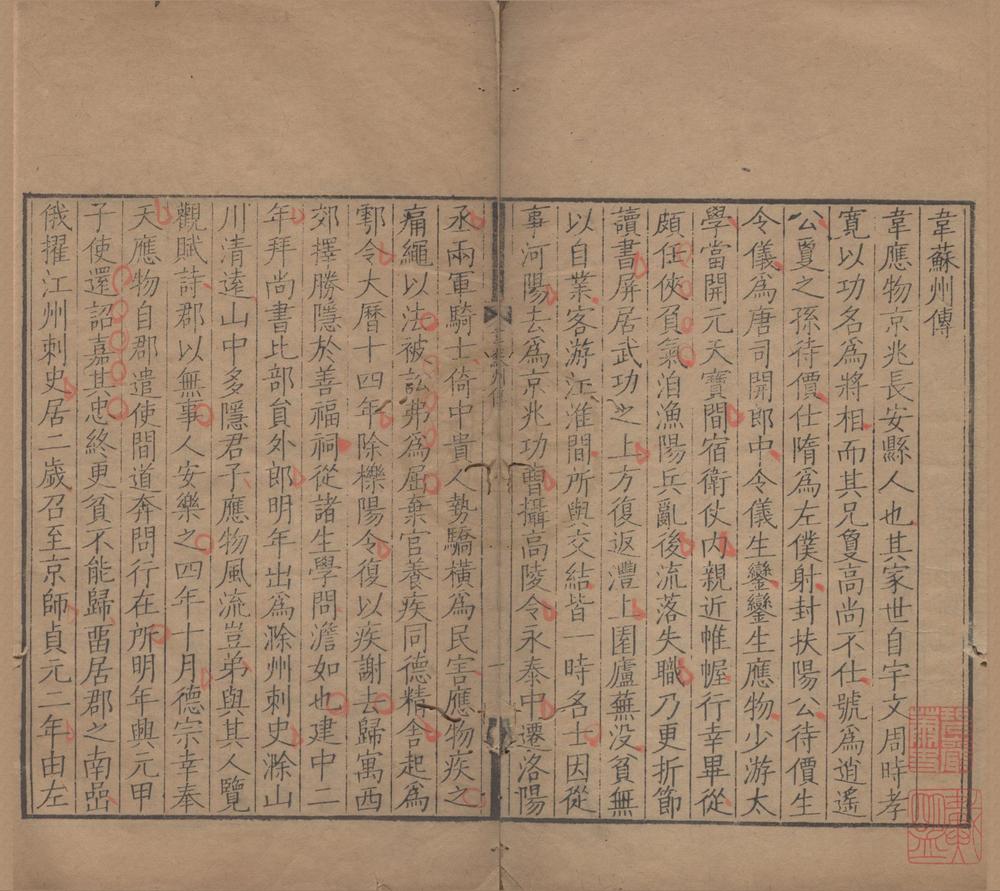 韋蘇州傳
韋應物京兆長安縣人也其家世自宇文周時孝
寬以功名爲將相而其兄敻高尚不仕號爲逍遙
公敻之孫待價仕隋爲左僕射封扶陽公待價生
令儀爲唐司開郎中令儀生鑾鑾生應物少游太
學當開元天寶間宿衛仗內親近帷幄行幸畢從
頗任俠負氣洎漁陽兵亂後流落失職乃更折節
讀書屏居武功之上方復返灃上園廬蕪没貧無
以自業客游江淮間所與交結皆一時名士因從
事河陽去爲京兆功曹攝高陵令永泰中遷洛陽
丞兩軍騎士倚中貴人勢驕橫爲民害應物疾之
痛繩以法被訟弗爲屈棄官養疾同德精舍起爲
鄠令大曆十四年除櫟陽令復以疾謝去歸寓西
郊擇勝隱於善福祠從諸生學問澹如也建中二
年拜尚書比部員外郎明年出爲滁州刺史滁山
川清遠山中多隱君子應物風流豈弟與其人覽
觀賦詩郡以無事人安樂之四年十月德宗幸奉
天應物自郡遣使間道奔問行在所明年興元甲
子使還詔嘉其忠終更貧不能歸畱居郡之南嵒
俄擢江州刺史居二歲召至京師貞元二年由左